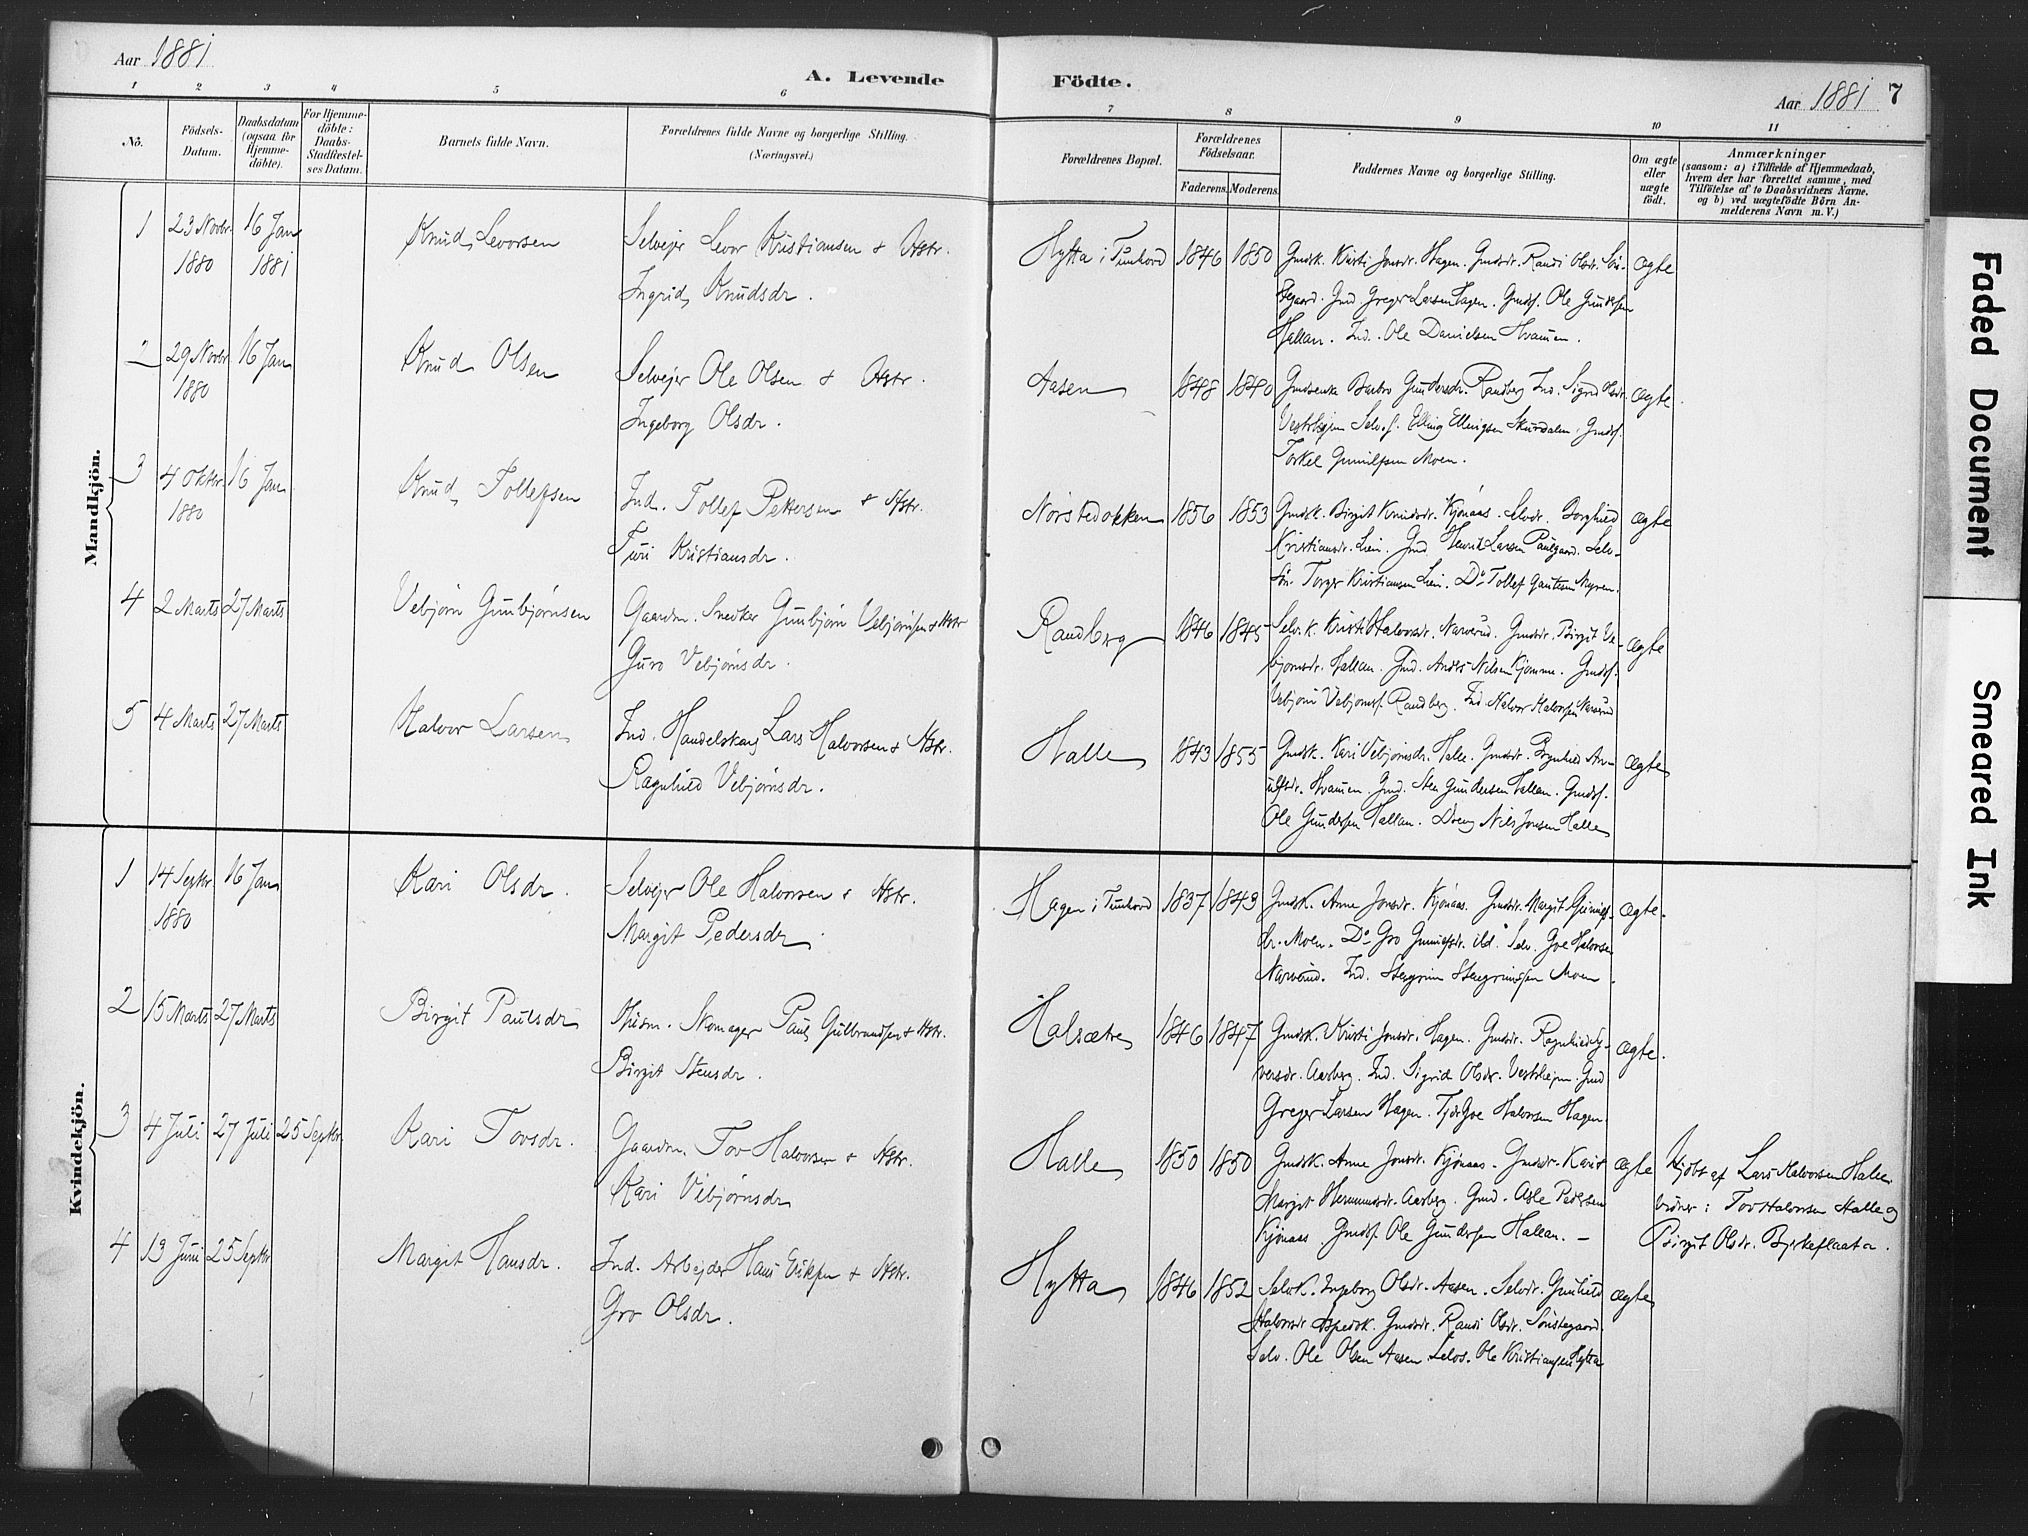 Aar 1881
A. Levende Födte.
Aar 1881 7
1 2 3 4 5 6 7 8 9 10 11
No.
Födsels-
Datum.
Daabsdatum
(ogsaa for
Hjemme-
döbte).
For Hjemme-
döbte:
Daabs-
Stadfæstel-
ses Datum.
Barnets fulde Navn.
Forældrenes fulde Navne og borgerlige Stilling.
(Næringsvei.)
Forældrenes Bopæl.
Forældrenes
Födselsaar.
Faderens. Moderens.
Faddernes Navne og borgerlige Stilling.
Om ægte
eller
uægte
födt.
Anmærkninger
(saasom: a) i Tilfælde af Hjemmedaab,
hvem der har forrettet samme, med
Tilföielse af to Daabsvidners Navne.
og b) ved uægtefödte Börn An-
melderens Navn m. V.)
Mandkjön.
1 23 Novbr. 16 Jan Knud Levorsen Selvejer Levor Kristiansen & Hstr.
1880 1881 Ingrid Knudsdr.
Hytta i Tunhovd 1846 1850 Gmdsk. Kirsti Jonsdr. Hagen. Gmdsdr. Randi Olsdr. Sön-
stegaard. Gmd Greger Larsen Hagen. Gmdsf. Ole Gundersen
Hallan. Ind. Ole Danielsen Hvamen. ægte
2 29 Novbr 16 Jan Knud Olsen Selvejer Ole Olsen & Hstr.
1880 Ingeborg Olsdr.
Aasen 1848 1840 Gmdsenke Barbro Gundersdr. Randberg Ind. Sigrid Olsdr.
Selv.s. Elling Ellingsen Skurdalen. Gmdsf.
Torkel Gunulfsen Moen. ægte
3 4 Oktbr. 16 Jan Knud Tollefsen Ind. Tollef Pettersen & Hstr.
1880 Turi Kristiansdr.
Nörstedokken 1856 1853 Gmdsk. Birgit Knudsdr. Kjönaas. Selvdr. Borghild
Kristiansdr. Lien. Gmd Henrik Larsen Paulgaard. Selv-
sön. Torger Kristiansen Lien. Do Tollef Gautesen Myren. ægte
4 2 Marts 27 Marts Vebjörn Gunbjörnsen Gaardm. Snedker Gunbjörn Vebjörnsen & Hstr
Guro Vebjörnsdr.
Randberg 1846 1845 Selv.k. Kirsti Halvorsdr. Narverud. Gmdsdr. Birgit Ve-
bjornsdr. Hallan. Gmd. Anders Nilsen Kjomme. Gmdsf.
Vebjörn Vebjornsf. Randberg. Ind. Halvor Halvorsen Narverud ægte
5 4 Marts 27 Marts Halvor Larsen Ind. Handelskarl Lars Halvorsen & Hstr.
Ragnhild Vebjörnsdr.
Halle 1843 1855 Gmdsk. Kari Vebjörnsdr. Halle. Gmdsdr. Ragnhild An-
Hvamen. Gmd. Sten Gundersen Hallan. Gmdsf.
Ole Gundersen Hallan. Dreng Nils Jonsen Halle ægte
Kvindekjön.
1 14 Septbr. 16 Jan Kari Olsdr. Selvejer Ole Halvorsen & Hstr.
1880 Margit Pedersdr
Hagen i Tunhovd 1837 1843 Gmdsk. Anne Jonsdr. Kjönaas. Gmdsdr. Margit Gunulfs-
dr. Moen. Do Gro Gunulfsdr. ibd. Selv. Goe Halvorsen
Narverud. Ind. Stengrim Stengrimsen Moen ægte.
2 15 Marts 27 Marts Birgit Paulsdr Husm. Skomager Paul Gulbrandsen & Hstr.
Birgit Stensdr.
Halsætre 1846 1847 Gmdsk. Kirsti Jonsdr. Hagen. Gmdsdr. Ragnhild Sy-
versdr. Aasberg. Ind. Sigrid Olsdr. Gmd
Greger Larsen Hagen. Goe Halvorsen Hagen. ægte.
3 4 Juli 27 Juli 25 Septbr. Kari Tovsdr. Gaardm. Tov Halvorsen & Hstr.
Kari Vebjörnsdr
Halle 1850 1850 Gmdsk. Anne Jonsdr. Kjönaas. Gmdsdr. Kari &
Margit Aasberg. Gmd. Asle Pedersen
Kjönaas. Gmdsf. Ole Gundersen Hallan. – ægte
Hjdbt af Lars Halvorsen Halle.
Vidner: Tov Halvorsen Halle og
Birgit Olsdr. Bjerkeflaata.
4 13 Juni 25 Septbr Margit Hansdr. Ind. Arbejder Hans Eriksen & Hstr.
Gro Olsdr.
Hytta 1846 1852 Selv.k. Ingeborg Olsdr. Aasen. Selvdr. Gunhild
Halvorsdr Gmdsdr. Randi Olsdr. Sönstegaard.
Selv. Ole Olsen Aasen. Selvs. Ole Kristiansen Hytta ægte
Faded Document
Smeared Ink